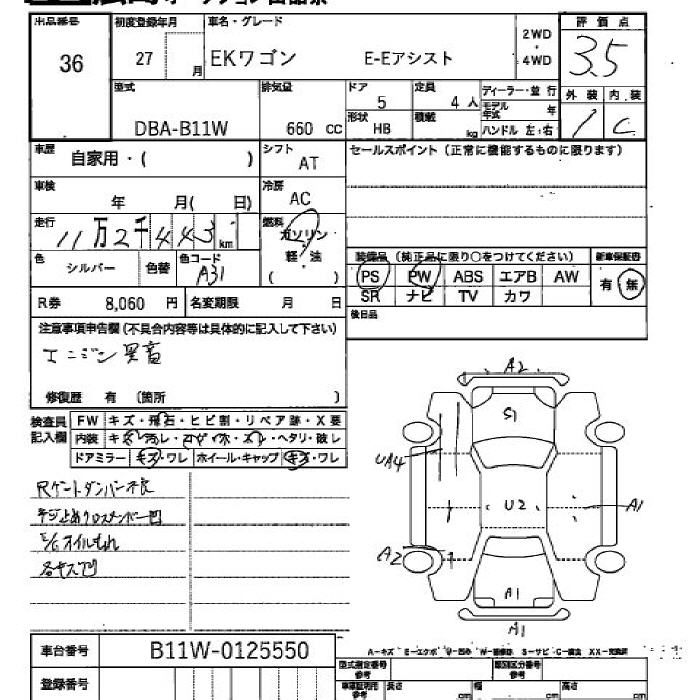 出品番号 初度登録年月 車名・グレード 2WD・4WD 評価点
36 27 月 EKワゴン E-Eアシスト 3.5
型式 排気量 ドア 定員 ディーラー・並行 外装 内装
DBA-B11W 660 cc 5 4人 モデル年式 年 1 C
形状 HB 積載 kg ハンドル 左:右
車歴 自家用・( ) シフト AT セールスポイント(正常に機能するものに限ります)
車検 年 月( 日) 冷房 AC
走行 11万2千443km 燃料 ガソリン・軽・油 ( )
色 シルバー 色替 色コード A31
装備品(純正品に限り○をつけてください) 新車保証書
PS PW ABS エアB AW 有・無
SR ナビ TV カワ
R券 8,060 円 名変期限 月 日 後日品
注意事項申告欄(不具合内容等は具体的に記入して下さい)
エンジン異音
修復歴 有 (箇所 )
検査員記入欄 FW キズ・飛石・ヒビ割・リペア跡・X要
内装 キズ・ヨゴレ・コゲ・ヘタリ・破レ
ドアミラー キズ・ワレ ホイール・キャップ キズ・ワレ
Rゲートダンパー不良
クロスメンバー凹
E/Gオイルもれ
各キズ凹
A2
S1
UA4
U2
A1
A2
A1
A1
車台番号 B11W-0125550
A-キズ E-エクボ U-凹み S-サビ
登録番号 型式指定番号参考 類別区分番号参考
長さ cm 幅 cm 高さ cm